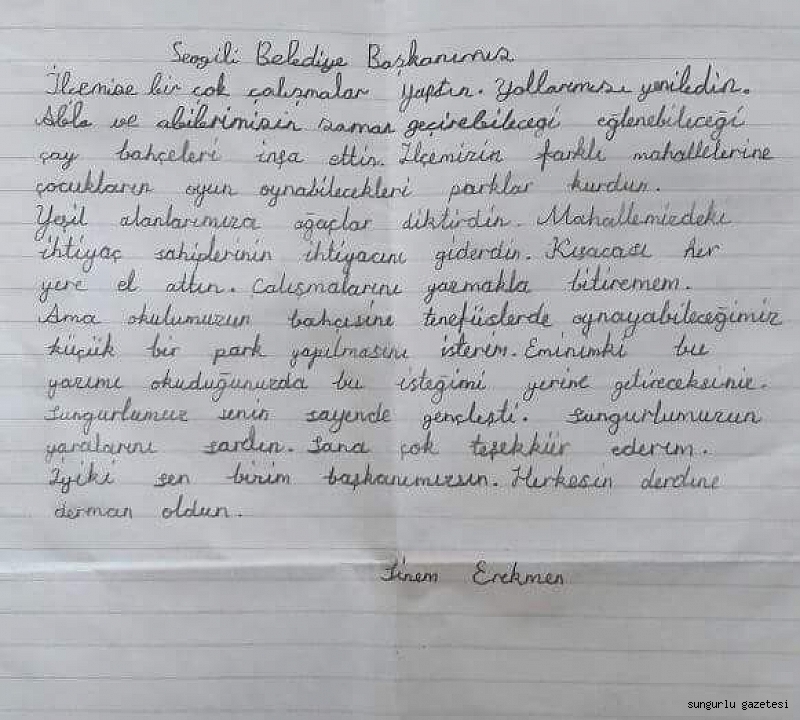 Sevgili Belediye Başkanımız
İlçemize bir çok çalışmalar yaptın. Yollarımızı yeniledin.
Abla ve abilerimizin zaman geçirebileceği eğlenebileceği
çay bahçeleri inşa ettin. İlçemizin farklı mahallelerine
çocukların oyun oynabilecekleri parklar kurdun.
Yeşil alanlarımıza ağaçlar diktirdin. Mahallemizdeki
ihtiyaç sahiplerinin ihtiyacını giderdin. Kısacası her
yere el attın. Çalışmalarını yazmakla bitiremem.
Ama okulumuzun bahçesine tenefüslerde oynayabileceğimiz
küçük bir park yapılmasını isterim. Eminimki bu
yazımı okuduğunuzda bu isteğimi yerine getireceksiniz.
Sungurlumuz senin sayende gençleşti. Sungurlumuzun
yaralarını sardın. Sana çok teşekkür ederim.
İyiki sen bizim başkanımızsın. Herkesin derdine
derman oldun.
Sinem Erekmen
sungurlu gazetesi